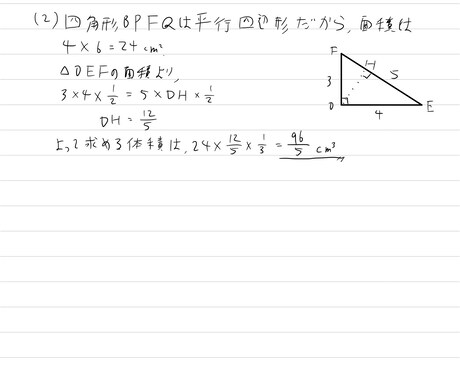 (2) 四角形BPFQは平行四辺形だから、面積は
4×6=24cm²
△DEFの面積より、
3×4×1/2=5×DH×1/2
DH=12/5
よって求める体積は、24×12/5×1/3=96/5 cm³
F
H
5
3
D
4
E